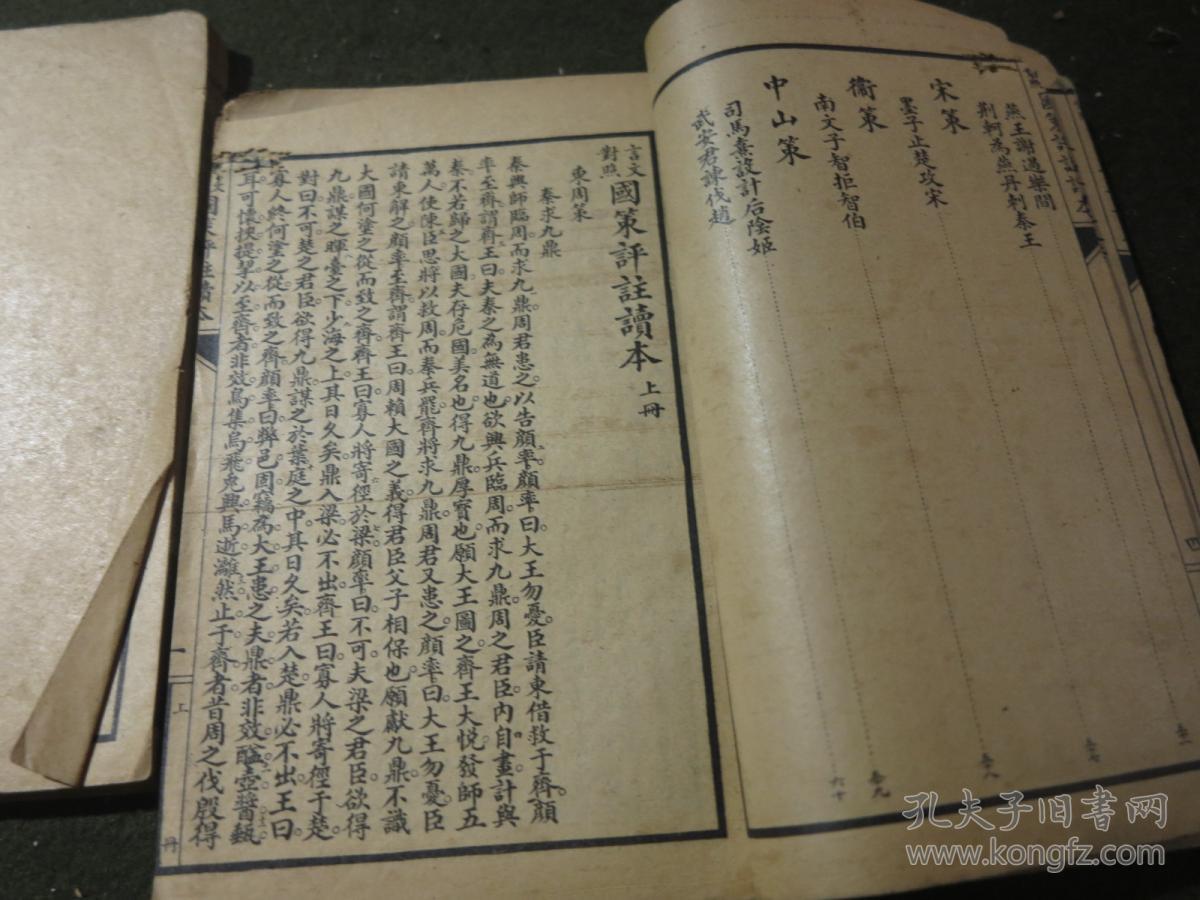 燕王謝過樂間
荆軻為燕丹刺秦王
宋策
墨子止楚攻宋
五八
衞策
南文子智拒智伯
五九
中山策
司馬憙設計后陰姬
六十
武安君諫伐趙
言文對照
國策評註讀本 上冊
東周策
秦求九鼎
秦興師臨周而求九鼎。周君患之。以告顔率。顔率曰。大王勿憂。臣請東借救于齊。顔
率至齊。謂齊王曰。夫秦之為無道也。欲興兵臨周而求九鼎。周之君臣。内自畫計。與
秦不若歸之大國。夫存危國美名也。得九鼎厚寶也。願大王圖之。齊王大悦。發師五
萬人。使陳臣思將以救周。而秦兵罷。齊將求九鼎。周君又患之。顔率曰。大王勿憂。臣
請東解之。顔率至齊。謂齊王曰。周賴大國之義。得君臣父子相保也。願獻九鼎。不識
大國何塗之從而致之齊。齊王曰。寡人將寄徑於梁。顔率曰。不可。夫梁之君臣欲得
九鼎。謀之暉臺之下。少海之上。其日久矣。鼎入梁。必不出。齊王曰。寡人將寄徑于楚。
對曰。不可。楚之君臣欲得九鼎。謀之於葉庭之中。其日久矣。若入楚。鼎必不出。王曰。
寡人終何塗之從而致之齊。顔率曰。弊邑固竊為大王患之。夫鼎者。非效醯壺醬甀
耳。可懷挾提挈以至齊者。非效鳥集烏飛。兔興馬逝。灕然止于齊者。昔周之伐殷。得
孔夫子旧书网
www.kongfz.com